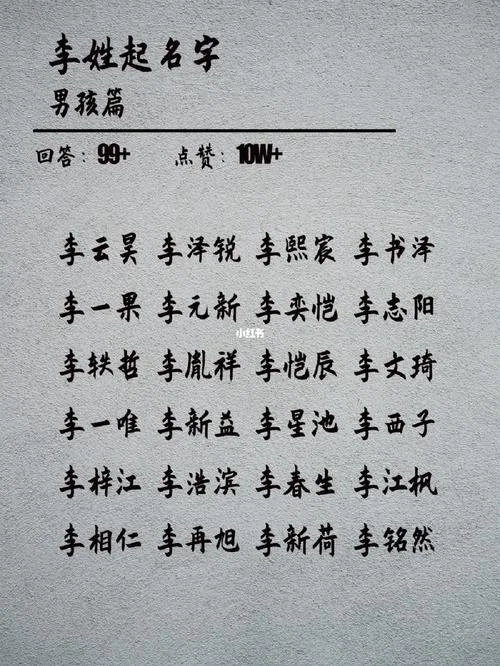 李姓起名字
男孩篇
回答：99+ 点赞：10W+
李云昊 李泽锐 李熙宸 李书泽
李一果 李元新 李奕恺 李志阳
小红书
李轶哲 李胤祥 李恺辰 李文琦
李一唯 李新益 李星池 李西子
李梓江 李浩滨 李春生 李江枫
李相仁 李再旭 李新荷 李铭然